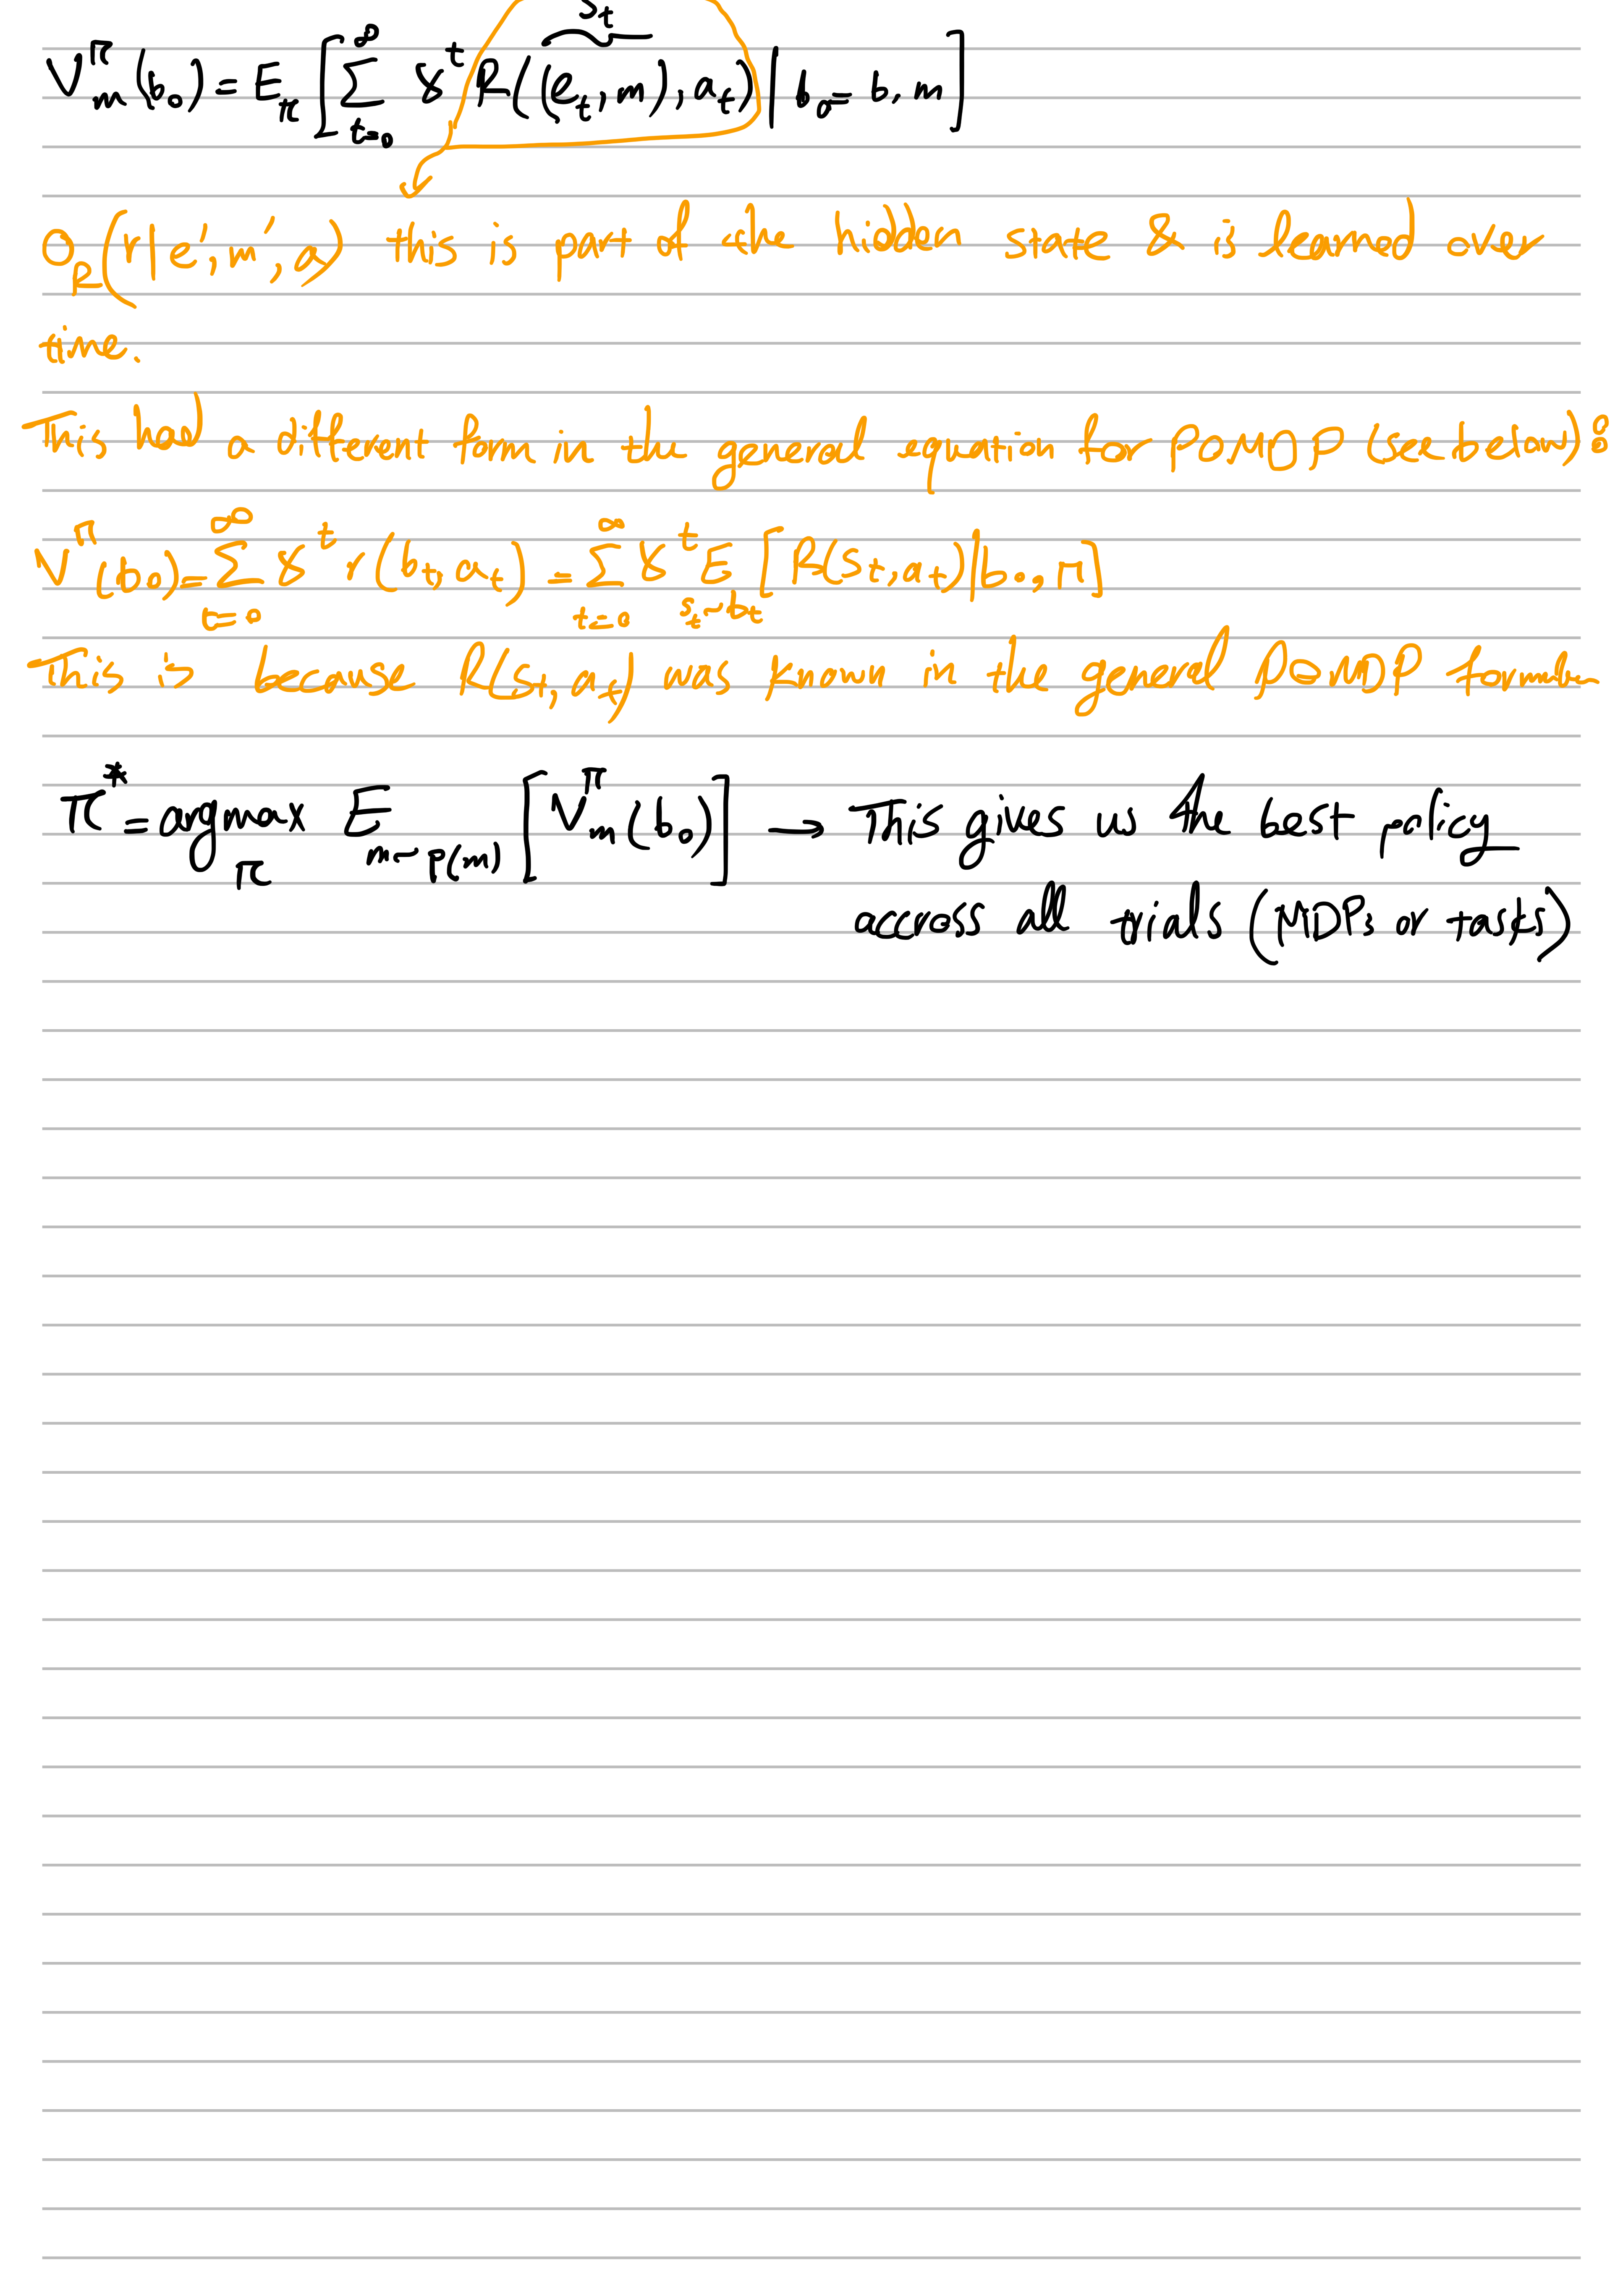 s_t
V^π_m(b_0) = E_π [ Σ_{t=0}^∞ γ^t R((e_t, m), a_t) | b_0 = b, m ]
O_R(r|e', m', a) this is part of the hidden state & is learned over
time.
This had a different form in the general equation for POMDP (see below):
V^π(b_0) = Σ_{t=0}^∞ γ^t r(b_t, a_t) = Σ_{t=0}^∞ γ^t E_{s_t~b_t} [R(s_t, a_t) | b_0, π]
This is because R(s_t, a_t) was known in the general POMDP formula
π^* = argmax_π E_{m~P(m)} [V^π_m(b_0)] → This gives us the best policy
access all trials (MDPs or tasks)